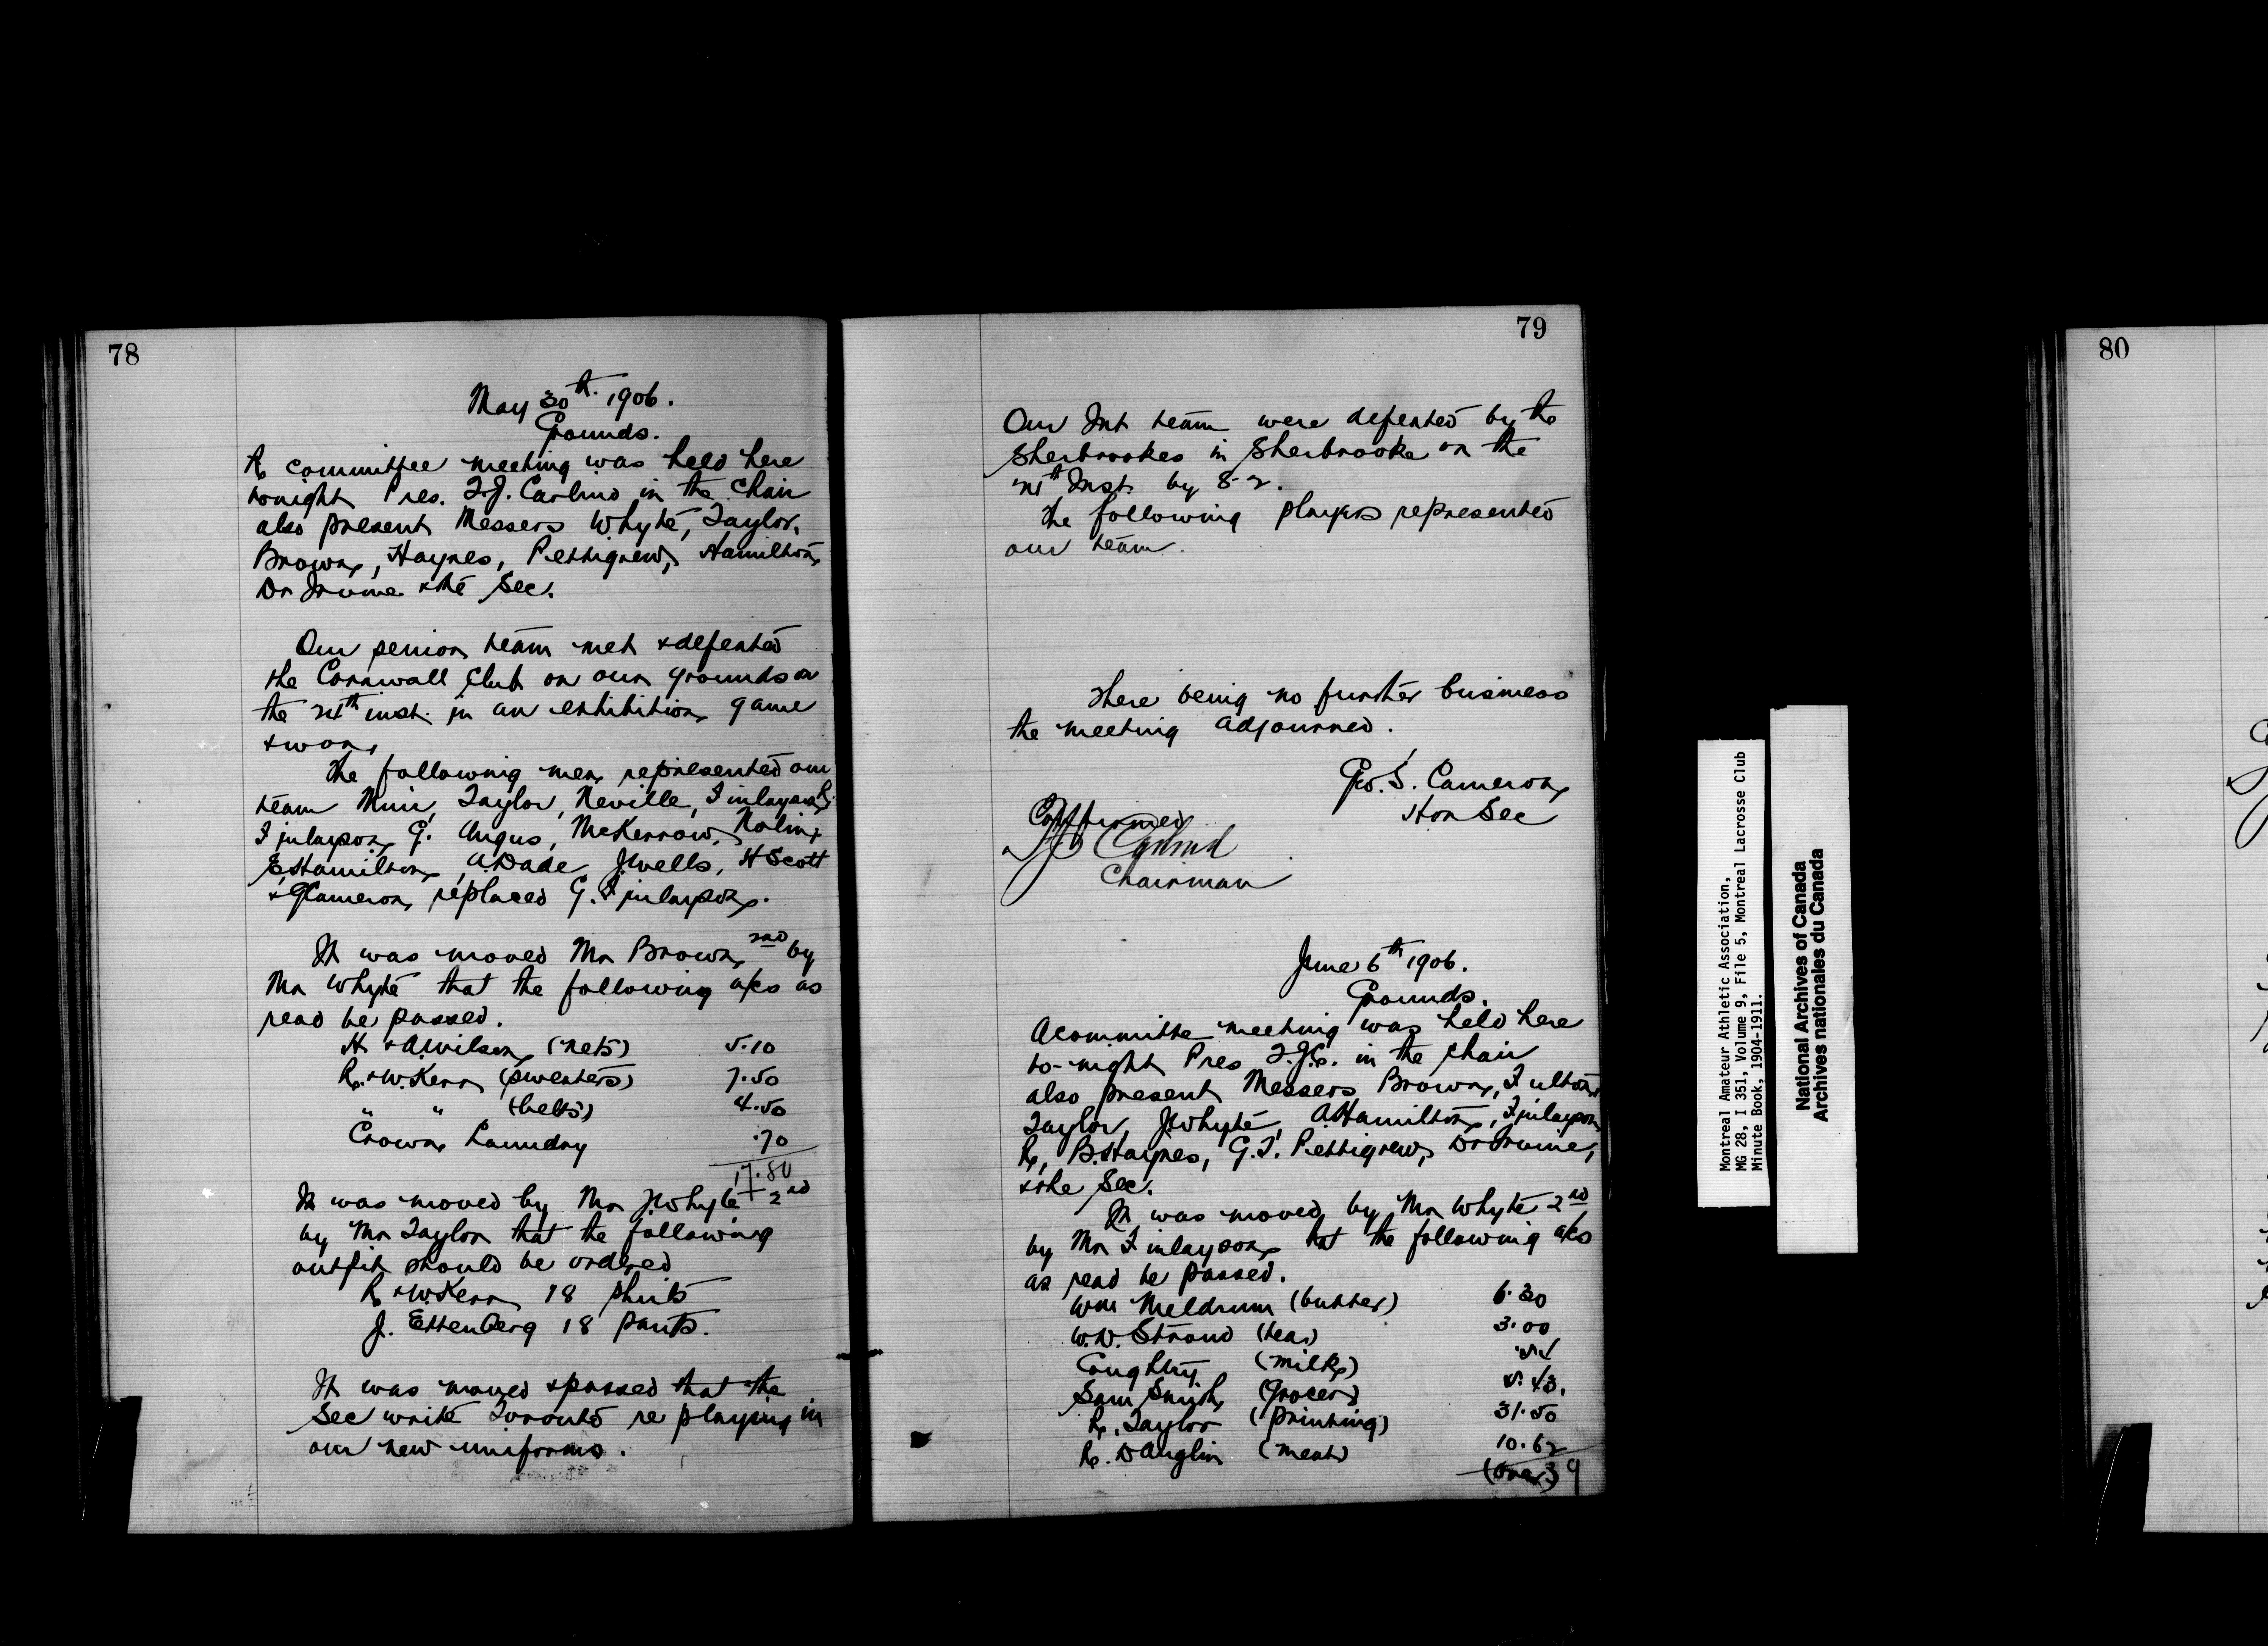 78
May 30th. 1906.
Grounds.
A committee meeting was held here
tonight Pres. T.J. Carlind in the chair
also present Messers Whyte, Taylor,
Brown, Haynes, Pettigrew, Hamilton,
Dr Irvine & the Sec.
Our senior team met & defeated
the Cornwall Club on our grounds on
the 24th inst. in an exhibition game
& won.
The following men represented our
team Muir, Taylor, Neville, Finlayson R.
Finlayson G. Angus, McKerrow, Nolin,
E. Hamilton, A. Dade, J. Wells, H Scott
& G Cameron replaced G. Finlayson.
It was moved Mr Brown 2nd by
Mr Whyte that the following a/cs as
read be passed.
H & A. Wilson (nets) 5.10
R. & W. Kerr (sweaters) 7.50
" " (belts) 4.50
Crown Laundry .70
17.80
It was moved by Mr J. Whyte 2nd
by Mr Taylor that the following
outfit should be ordered
R & W. Kerr 18 shirts
J. Ettenberg 18 pants.
It was moved & passed that the
Sec write Toronto re playing in
our new uniforms.
79
Our Int team were defeated by the
Sherbrookes in Sherbrooke on the
24th Inst. by 8-2.
The following players represented
our team.
There being no further business
the meeting adjourned.
Geo. S. Cameron
Hon Sec
Confirmed
Chairman
June 6th 1906.
Grounds.
A committe meeting was held here
to-night Pres T.J.C. in the chair
also present Messers Brown, Fulton,
Taylor, J. Whyte, A Hamilton, Finlayson
R, B. Haynes, G.T. Pettigrew, Dr Irvine,
& the Sec.
It was moved by Mr Whyte 2nd
by Mr Finlayson that the following a/cs
as read be passed.
Wm Meldrum (butter) 6.30
W.D. Stroud (tea) 3.00
(milk) .54
Sam Smith (grocer) 5.43.
R. Taylor (printing) 31.50
R. Danglin (meat) 10.62
(over)
80
Montreal Amateur Athletic Association,
MG 28, I 351, Volume 9, File 5, Montreal Lacrosse Club
Minute Book, 1904-1911.
National Archives of Canada
Archives nationales du Canada